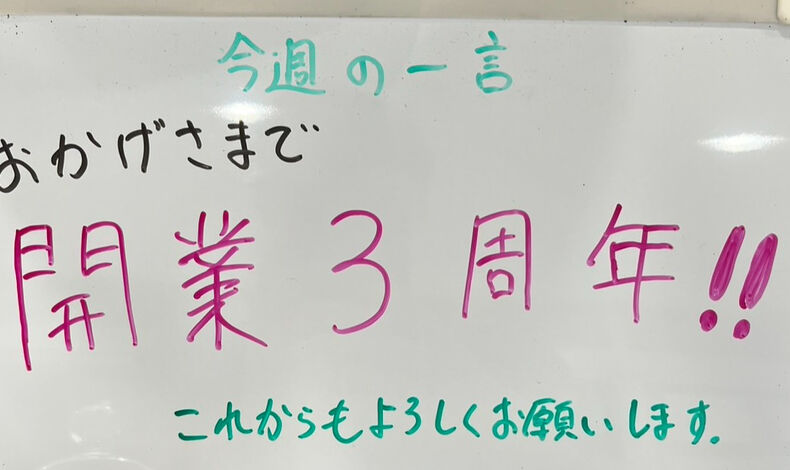 今週の一言
おかげさまで
開業3周年!!
これからもよろしくお願いします。